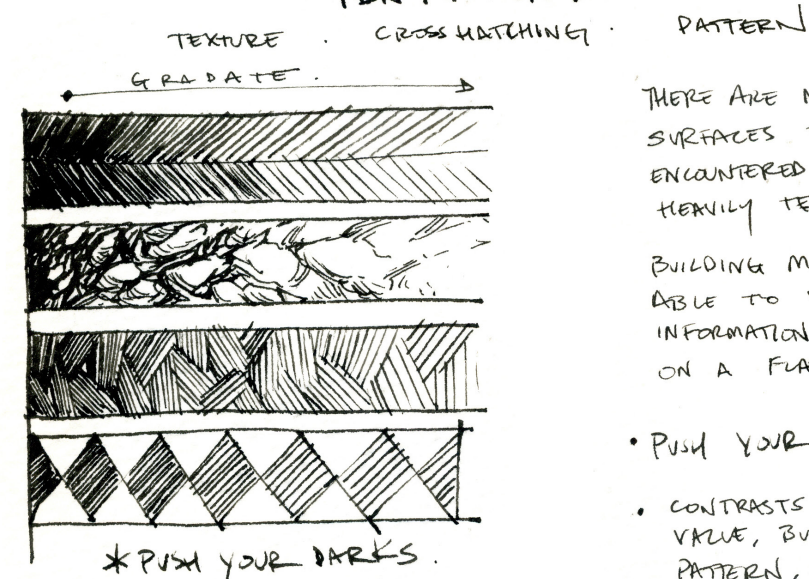 TEXTURE . CROSSHATCHING . PATTERN
GRADATE .
* PUSH YOUR DARKS .
THERE ARE
SURFACES
ENCOUNTERED
HEAVILY
BUILDING
ABLE TO
INFORMATION
ON A
• PUSH YOUR
• CONTRASTS
VALUE,
PATTERN,